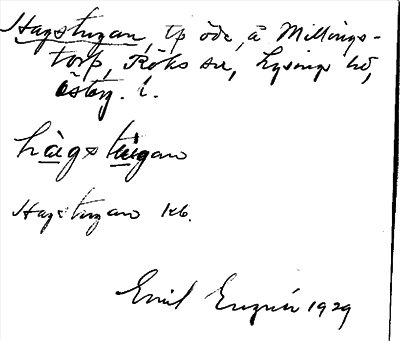 Hagstugan, tp öde, å Millings-
torp, Röks sn, Lysings hd,
Österg. l.
hàgstùgan
Hagstugan kb.
Emil 1929